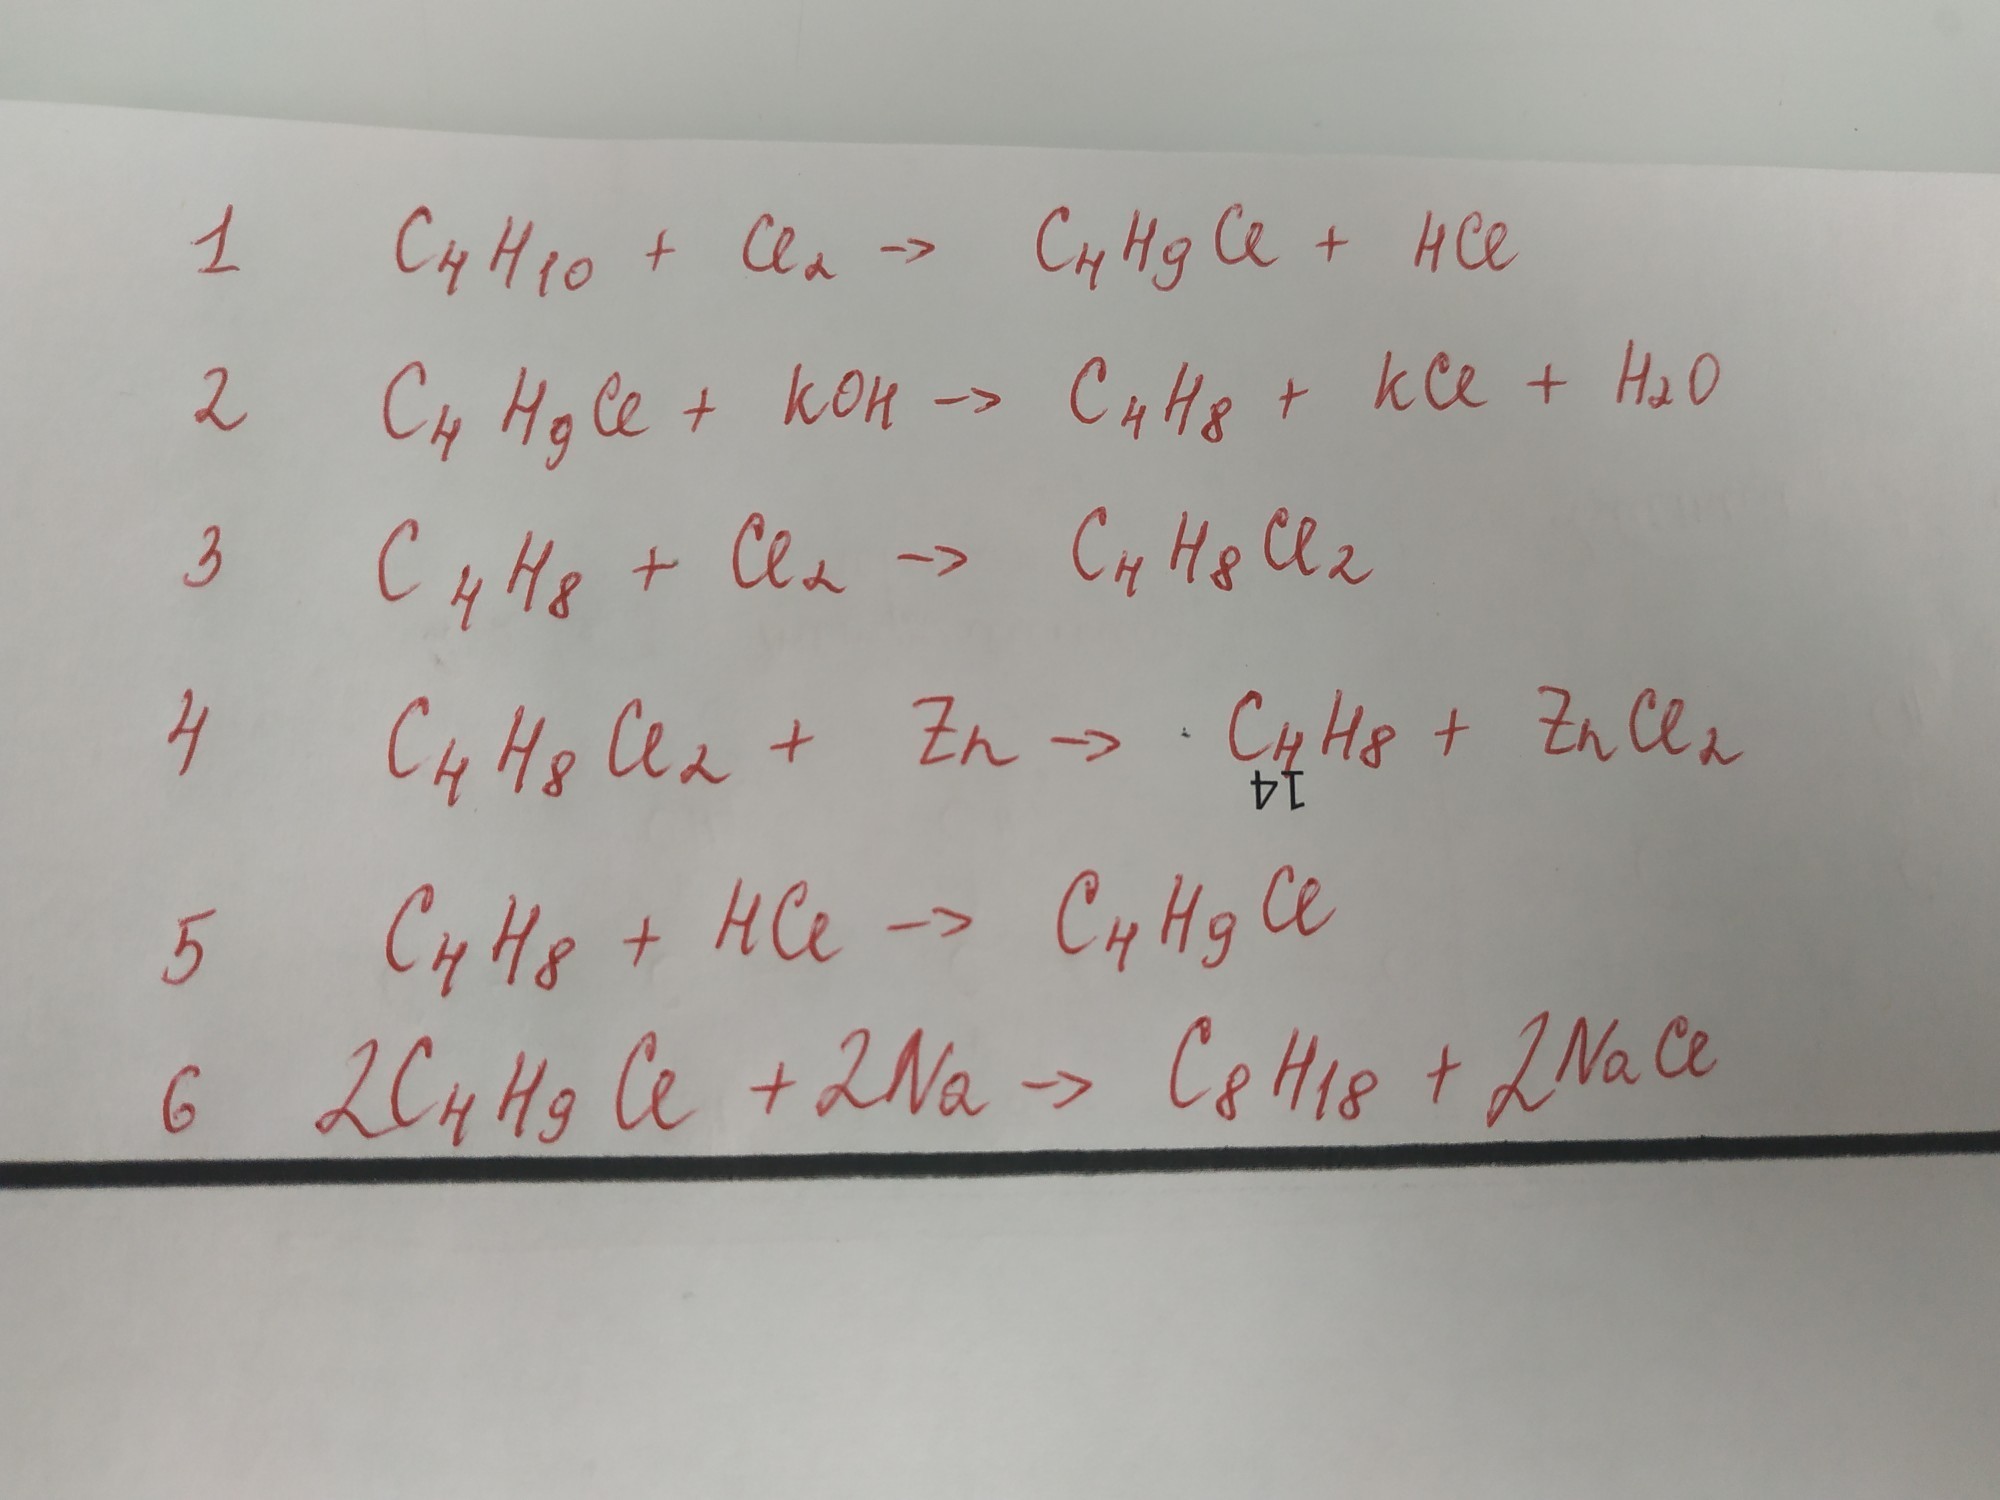 1 C₄H₁₀ + Cl₂ → C₄H₉Cl + HCl
2 C₄H₉Cl + KOH → C₄H₈ + KCl + H₂O
3 C₄H₈ + Cl₂ → C₄H₈Cl₂
4 C₄H₈Cl₂ + Zn → C₄H₈ + ZnCl₂
14
5 C₄H₈ + HCl → C₄H₉Cl
6 2C₄H₉Cl + 2Na → C₈H₁₈ + 2NaCl